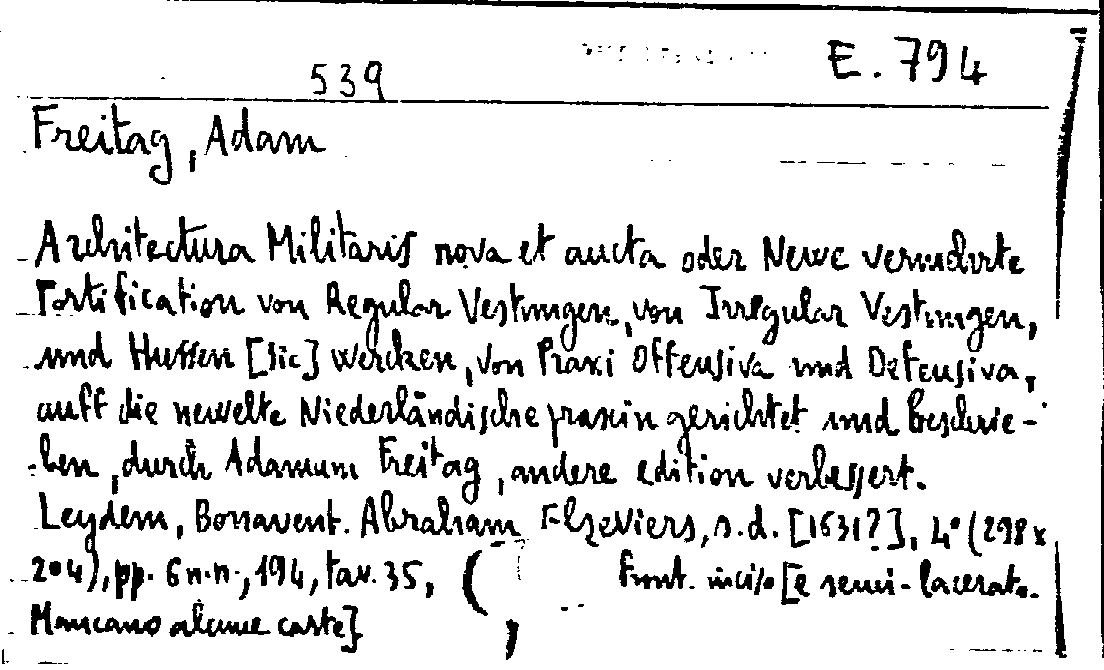 E. 794
539
Freitag, Adam
Architectura Militaris nova et aucta oder Newe vermehrte
Fortification von Regular Vestungen, von Irregular Vestungen,
und Hussen [sic] wercken, von Praxi Offensiva und Defensiva,
auff die newelte Niederländische praxin gerichtet und beschrie-
ben, durch Adamum Freitag, andere edition verbessert.
Leydem, Bonavent. Abraham Elzeviers, s.d. [1631?], 4° (298x
204), pp. 6 n.n., 194, tav. 35, ( front. inciso [e semi-lacerato.
Mancano alcune carte]